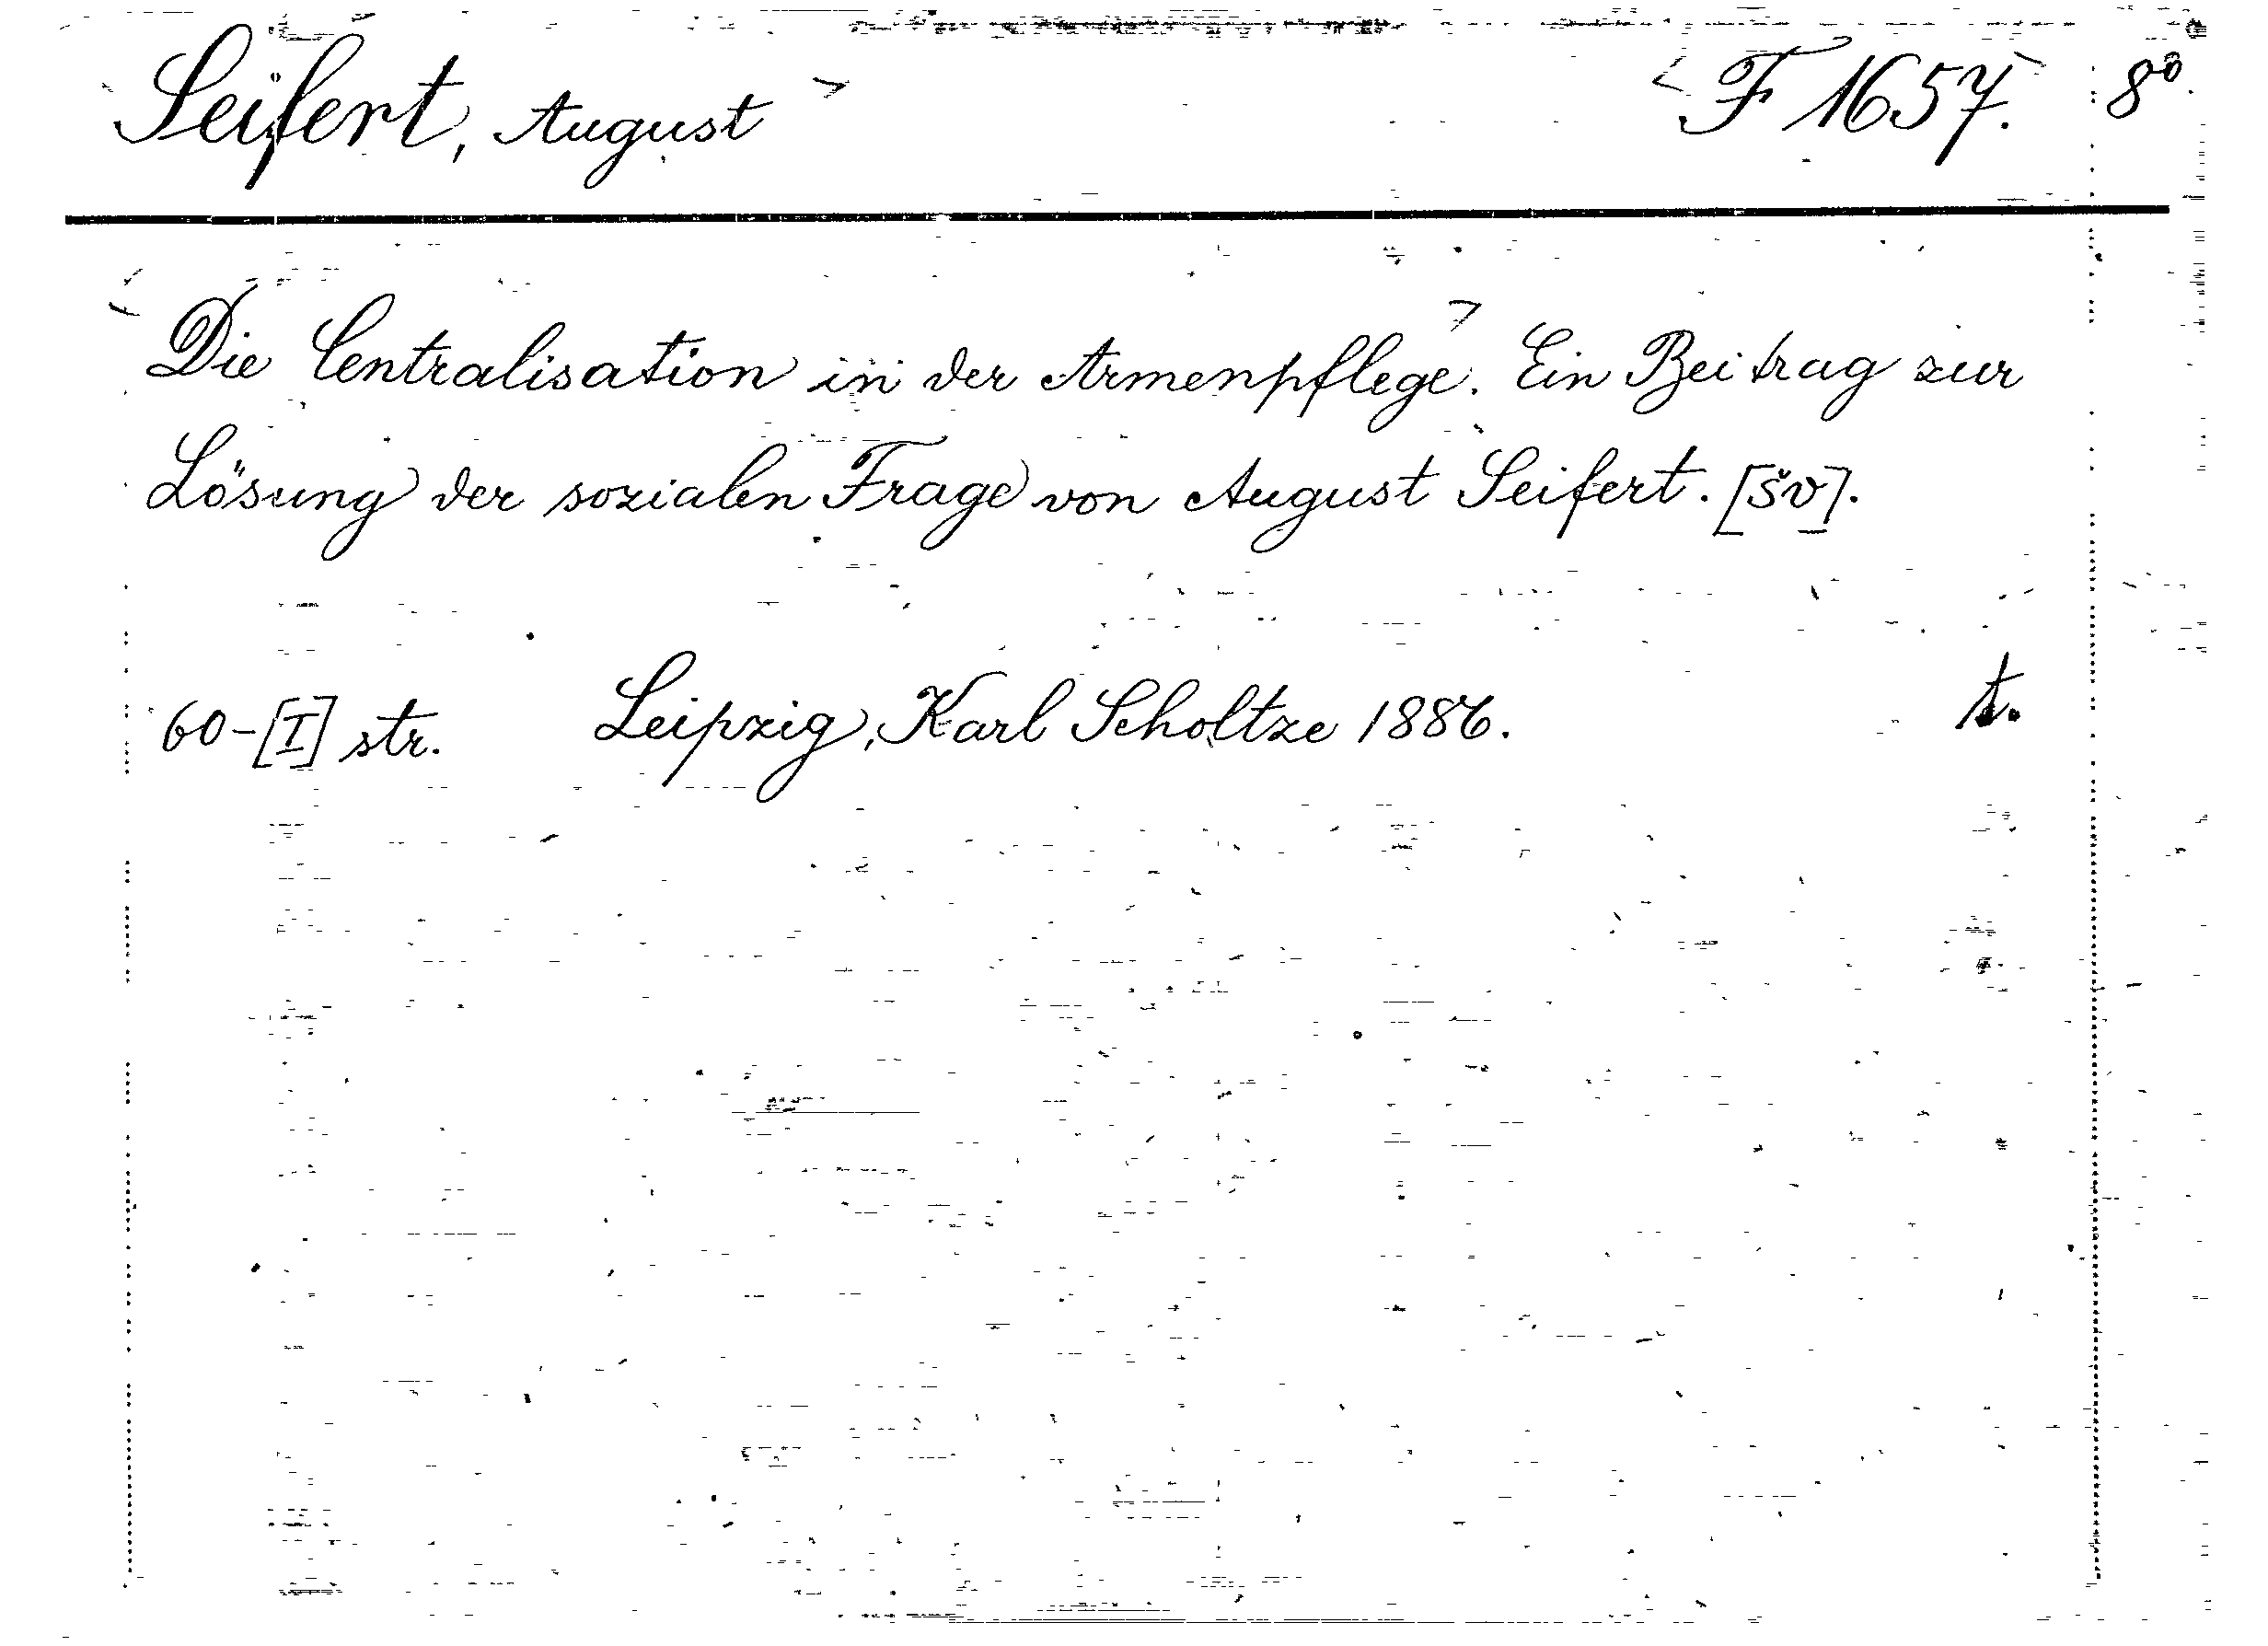 Seifert, August F 1657. 8⁰.
Die Centralisation in der Armenpflege. Ein Beitrag zur
Lösung der sozialen Frage von August Seifert. [šv].
60-[I] str. Leipzig, Karl Scholtze 1886. t.